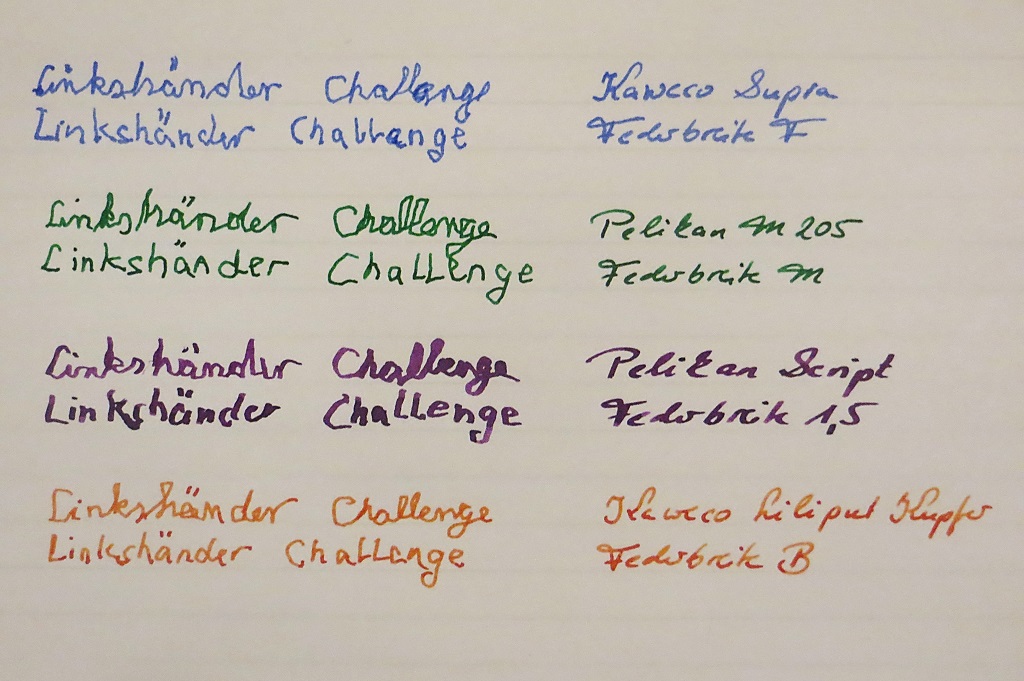 Linkshänder Challange Kaweco Supra
Linkshänder Challange Federbreite F
Linkshänder Challenge Pelikan M 205
Linkshänder Challenge Federbreite M
Linkshänder Challenge Pelikan Script
Linkshänder Challenge Federbreite 1,5
Linkshänder Challenge Kaweco Liliput Kupfer
Linkshänder Challange Federbreite B